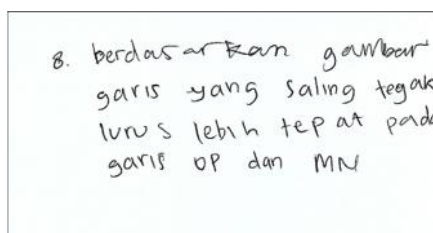 8. berdasarkan gambar
garis yang saling tegak
lurus lebih tepat pada
garis OP dan MN